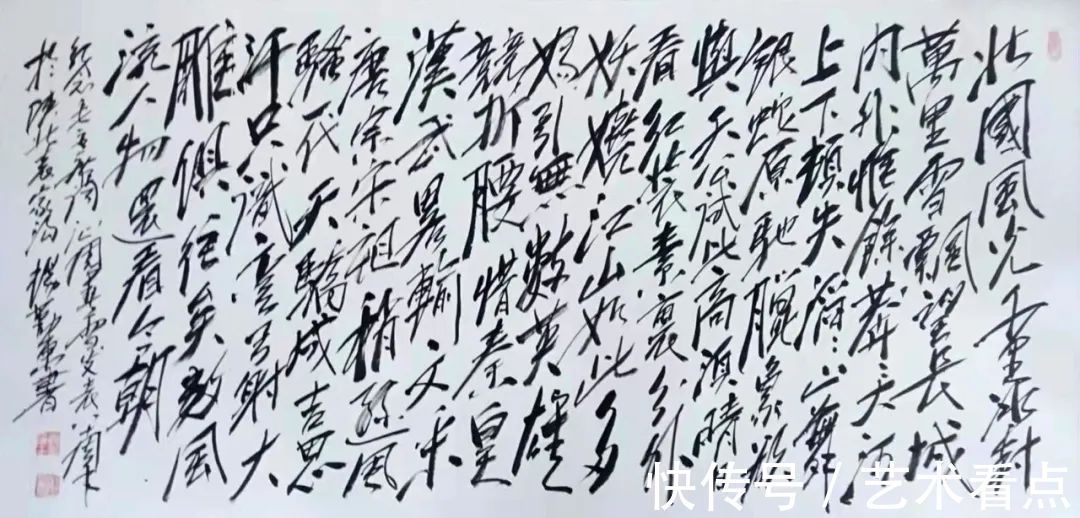 北國風光千里冰封
萬里雪飄望長城
內外惟餘莽〻大河
上下頓失滔〻山舞
銀蛇原馳臘象欲
與天公試比高須晴日
看紅裝素裹分外
妖嬈江山如此多
嬌引無數英雄
競折腰惜秦皇
漢武略輸文采
唐宗宋祖稍遜風
騷一代天驕成吉思
汗只識彎弓射大
雕俱往矣數風
流人物還看今朝
紀念毛主席沁園春雪發表
於陝北袁家溝 書
快传号 / 艺术看点